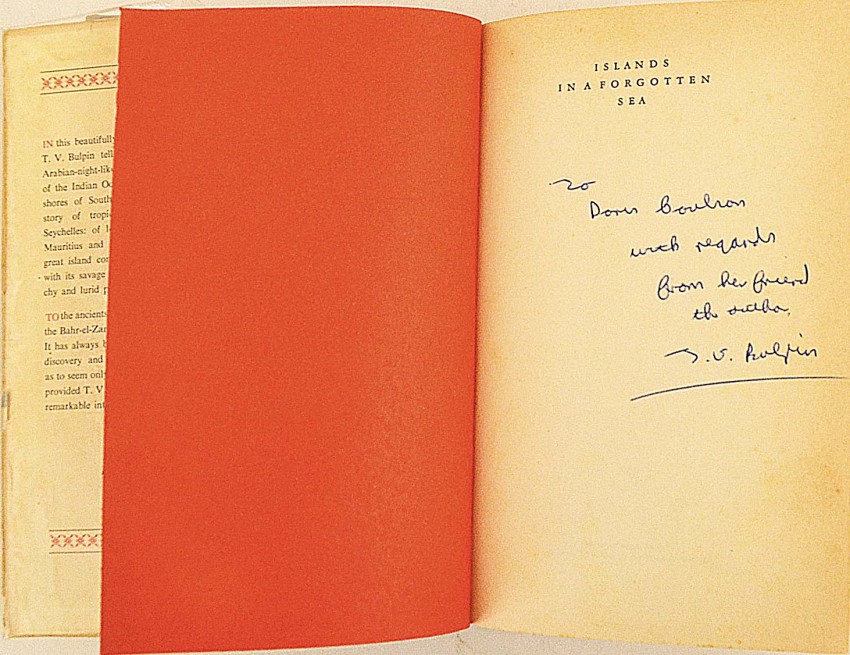 IN this beautifully
T. V. Bulpin tell
Arabian-night-like
of the Indian Oc
shores of South
story of tropi
Seychelles: of l
Mauritius and
great island con
with its savage
chy and lurid p
TO the ancients
the Bahr-el-Zan
It has always b
discovery and
as to seem only
provided T. V
remarkable int
ISLANDS
IN A FORGOTTEN
SEA
To
Doris Coulson
with regards
from her friend
the author,
T. V. Bulpin